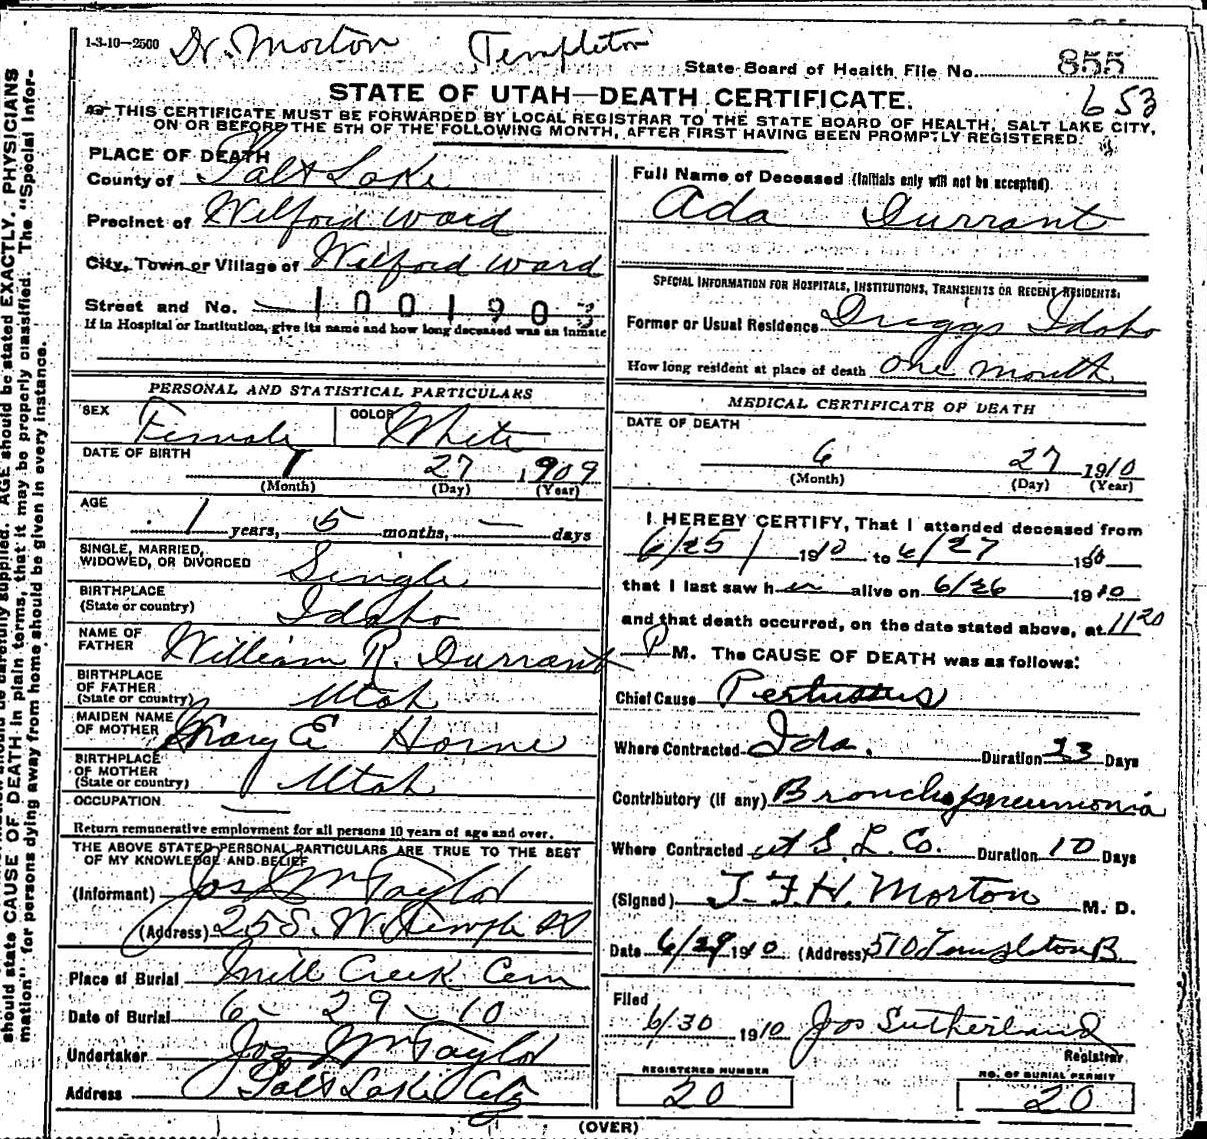 1-3-10-2500 Dr. Morton Templeton
State Board of Health File No. 855
STATE OF UTAH—DEATH CERTIFICATE.
653
THIS CERTIFICATE MUST BE FORWARDED BY LOCAL REGISTRAR TO THE STATE BOARD OF HEALTH, SALT LAKE CITY,
ON OR BEFORE THE 5TH OF THE FOLLOWING MONTH, AFTER FIRST HAVING BEEN PROMPTLY REGISTERED.
PLACE OF DEATH
County of Salt Lake
Precinct of Wilford Ward
City, Town or Village of Wilford Ward
Street and No. — 1001903
If in Hospital or Institution, give its name and how long deceased was an inmate
PERSONAL AND STATISTICAL PARTICULARS
SEX Female COLOR White
DATE OF BIRTH 1 27 1909
(Month) (Day) (Year)
AGE 1 years, 5 months, — days
SINGLE, MARRIED,
WIDOWED, OR DIVORCED Single
BIRTHPLACE
(State or country) Idaho
NAME OF
FATHER William R. Durrant
BIRTHPLACE
OF FATHER
(State or country) Utah
MAIDEN NAME
OF MOTHER Mary E Horne
BIRTHPLACE
OF MOTHER
(State or country) Utah
OCCUPATION —
Return remunerative employment for all persons 10 years of age and over.
THE ABOVE STATED PERSONAL PARTICULARS ARE TRUE TO THE BEST
OF MY KNOWLEDGE AND BELIEF
(Informant) Jos Wm Taylor
(Address) 25 S. W. Temple St
Place of Burial Mill Creek Cem
Date of Burial 6 - 29 - 10
Undertaker Jos Wm Taylor
Address Salt Lake City
Full Name of Deceased (Initials only will not be accepted).
Ada Durrant
SPECIAL INFORMATION FOR HOSPITALS, INSTITUTIONS, TRANSIENTS OR RECENT RESIDENTS.
Former or Usual Residence Driggs Idaho
How long resident at place of death one month
MEDICAL CERTIFICATE OF DEATH
DATE OF DEATH
6 27 1910
(Month) (Day) (Year)
I HEREBY CERTIFY, That I attended deceased from
6/25 1910 to 6/27 1910
that I last saw her alive on 6/26 1910
and that death occurred, on the date stated above, at 11 20
P M. The CAUSE OF DEATH was as follows:
Chief Cause Pertussus
Where Contracted Ida. Duration 23 Days
Contributory (if any) Broncho pneumonia
Where Contracted at S. L. Co. Duration 10 Days
(Signed) T. F. H. Morton M. D.
Date 6/29 1910 (Address) 510 Templeton B
Filed
6/30 1910 Jos Sutherland
Registrar
REGISTERED NUMBER
20
NO. OF BURIAL PERMIT
20
(OVER)
AGE should be stated EXACTLY. PHYSICIANS
should state CAUSE OF DEATH in plain terms, that it may be properly classified. The "Special Infor-
mation" for persons dying away from home should be given in every instance.